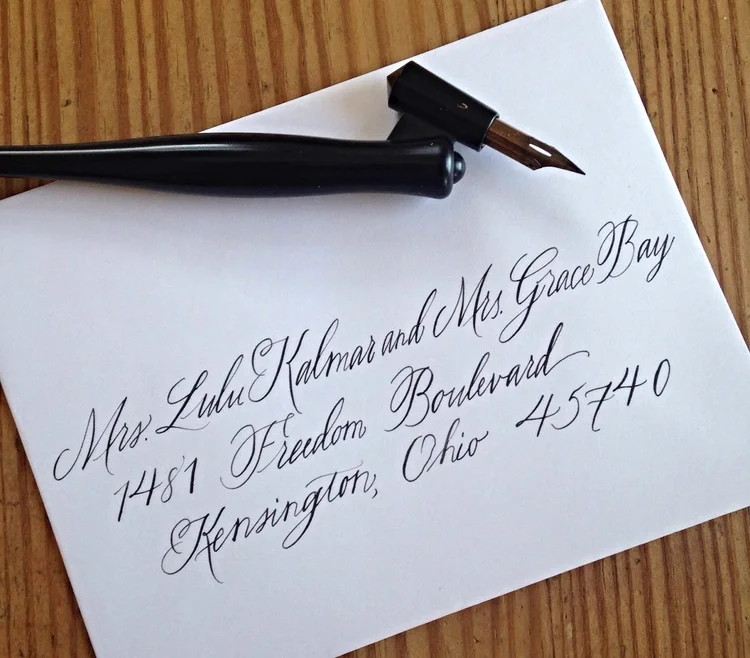 Mrs. Lulu Kalmar and Mrs. Grace Bay
1481 Freedom Boulevard
Kensington, Ohio 45740